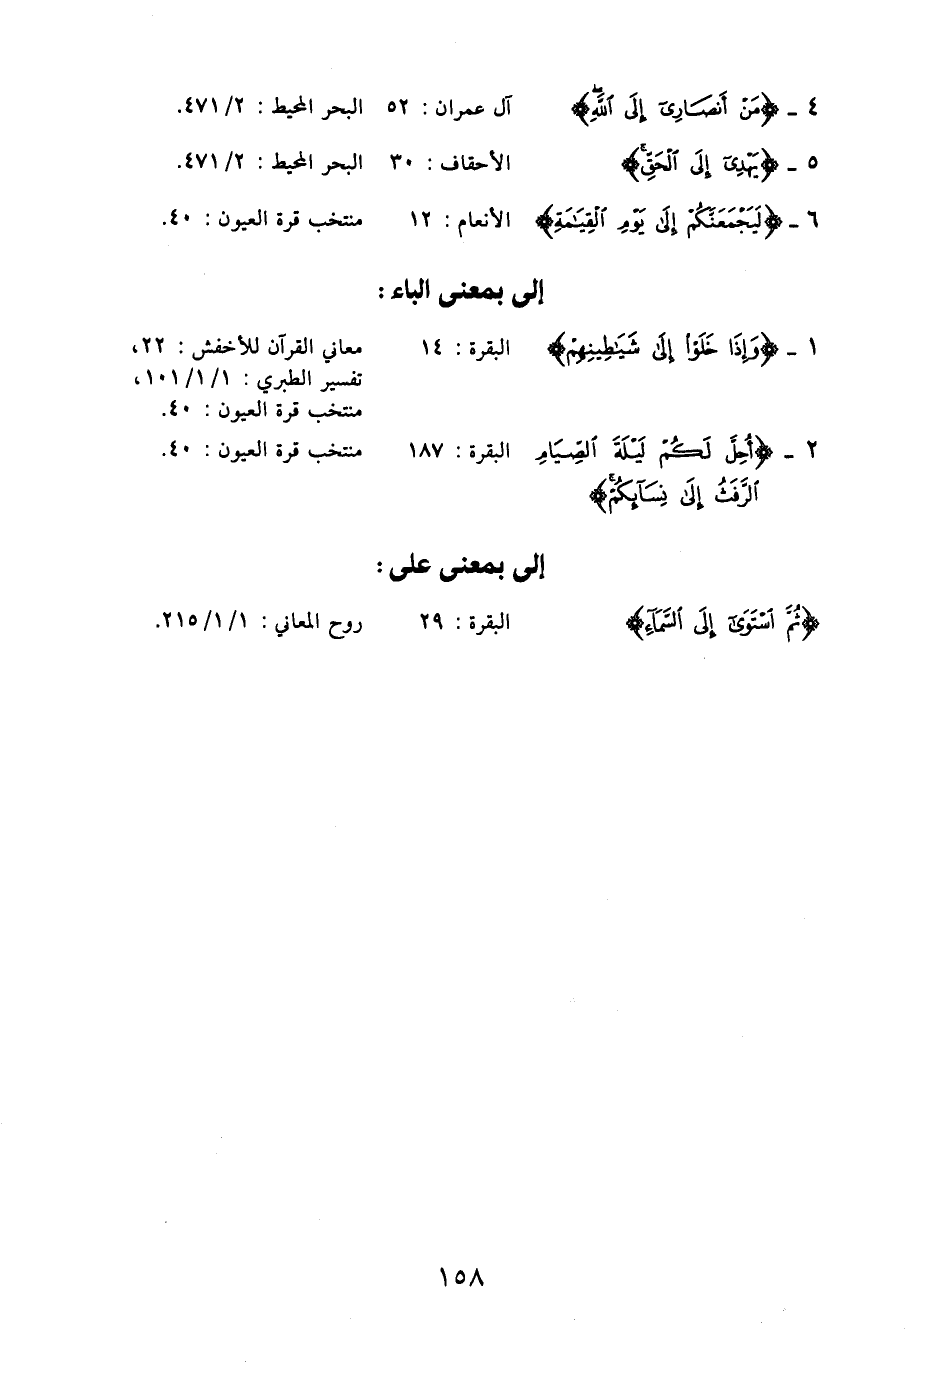 ٤ ـ ﴿مَنْ أَنصَارِىٓ إِلَى ٱللَّهِۖ﴾ آل عمران : ٥٢ البحر المحيط : ٤٧١/٢.
٥ ـ ﴿يَهْدِىٓ إِلَى ٱلْحَقِّۚ﴾ الأحقاف : ٣٠ البحر المحيط : ٤٧١/٢.
٦ ـ ﴿لَيَجْمَعَنَّكُمْ إِلَىٰ يَوْمِ ٱلْقِيَـٰمَةِ﴾ الأنعام : ١٢ منتخب قرة العيون : ٤٠.
إلى بمعنى الباء :
١ ـ ﴿وَإِذَا خَلَوْا۟ إِلَىٰ شَيَـٰطِينِهِمْ﴾ البقرة : ١٤ معاني القرآن للأخفش : ٢٢،
تفسير الطبري : ١٠١/١/١،
منتخب قرة العيون : ٤٠.
٢ ـ ﴿أُحِلَّ لَكُمْ لَيْلَةَ ٱلصِّيَامِ البقرة : ١٨٧ منتخب قرة العيون : ٤٠.
ٱلرَّفَثُ إِلَىٰ نِسَآئِكُمْۚ﴾
إلى بمعنى على :
﴿ثُمَّ ٱسْتَوَىٰٓ إِلَى ٱلسَّمَآءِ﴾ البقرة : ٢٩ روح المعاني : ٢١٥/١/١.
١٥٨